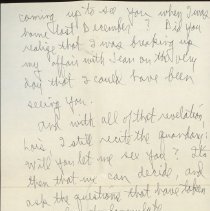 coming up to see you when I was
home last December? Did you
realize that I was breaking up
my affair with Jean on the very
day that I could have been
seeing you.
and with all of that revelation
Lois, I still recite the
Will you let me see you? It's
then that we can decide, and
ask the questions that have taken